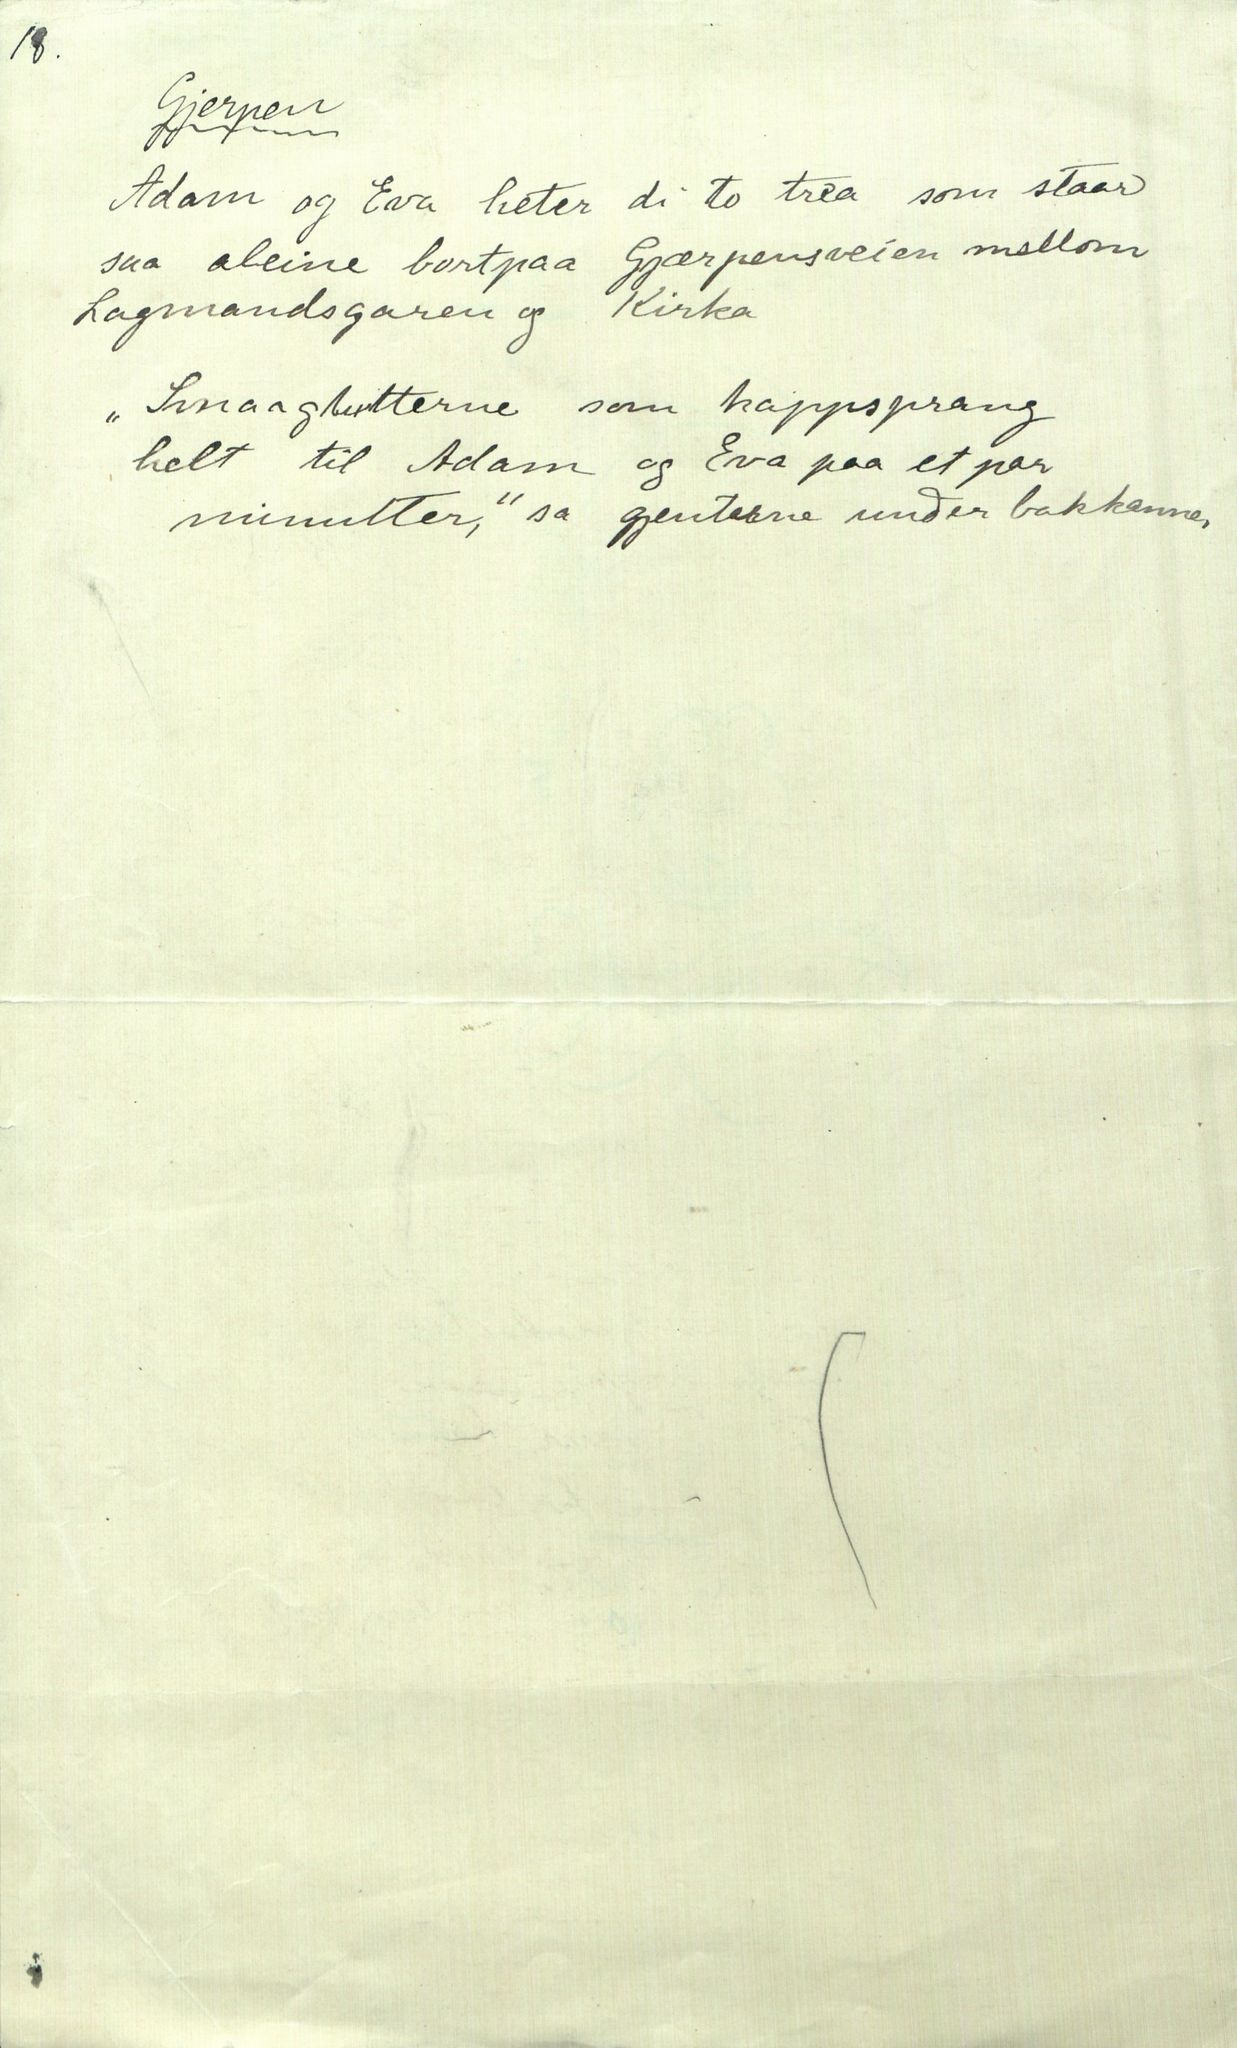 18.
Gjerpen
Adam og Eva heter di to trea som staar
saa aleine bortpaa Gjærpensveien mellom
Lagmandsgaren og Kirka
„Smaaglutterne som kappsprang
helt til Adam og Eva paa et par
minutter," sa gjenterne under bakkanne,